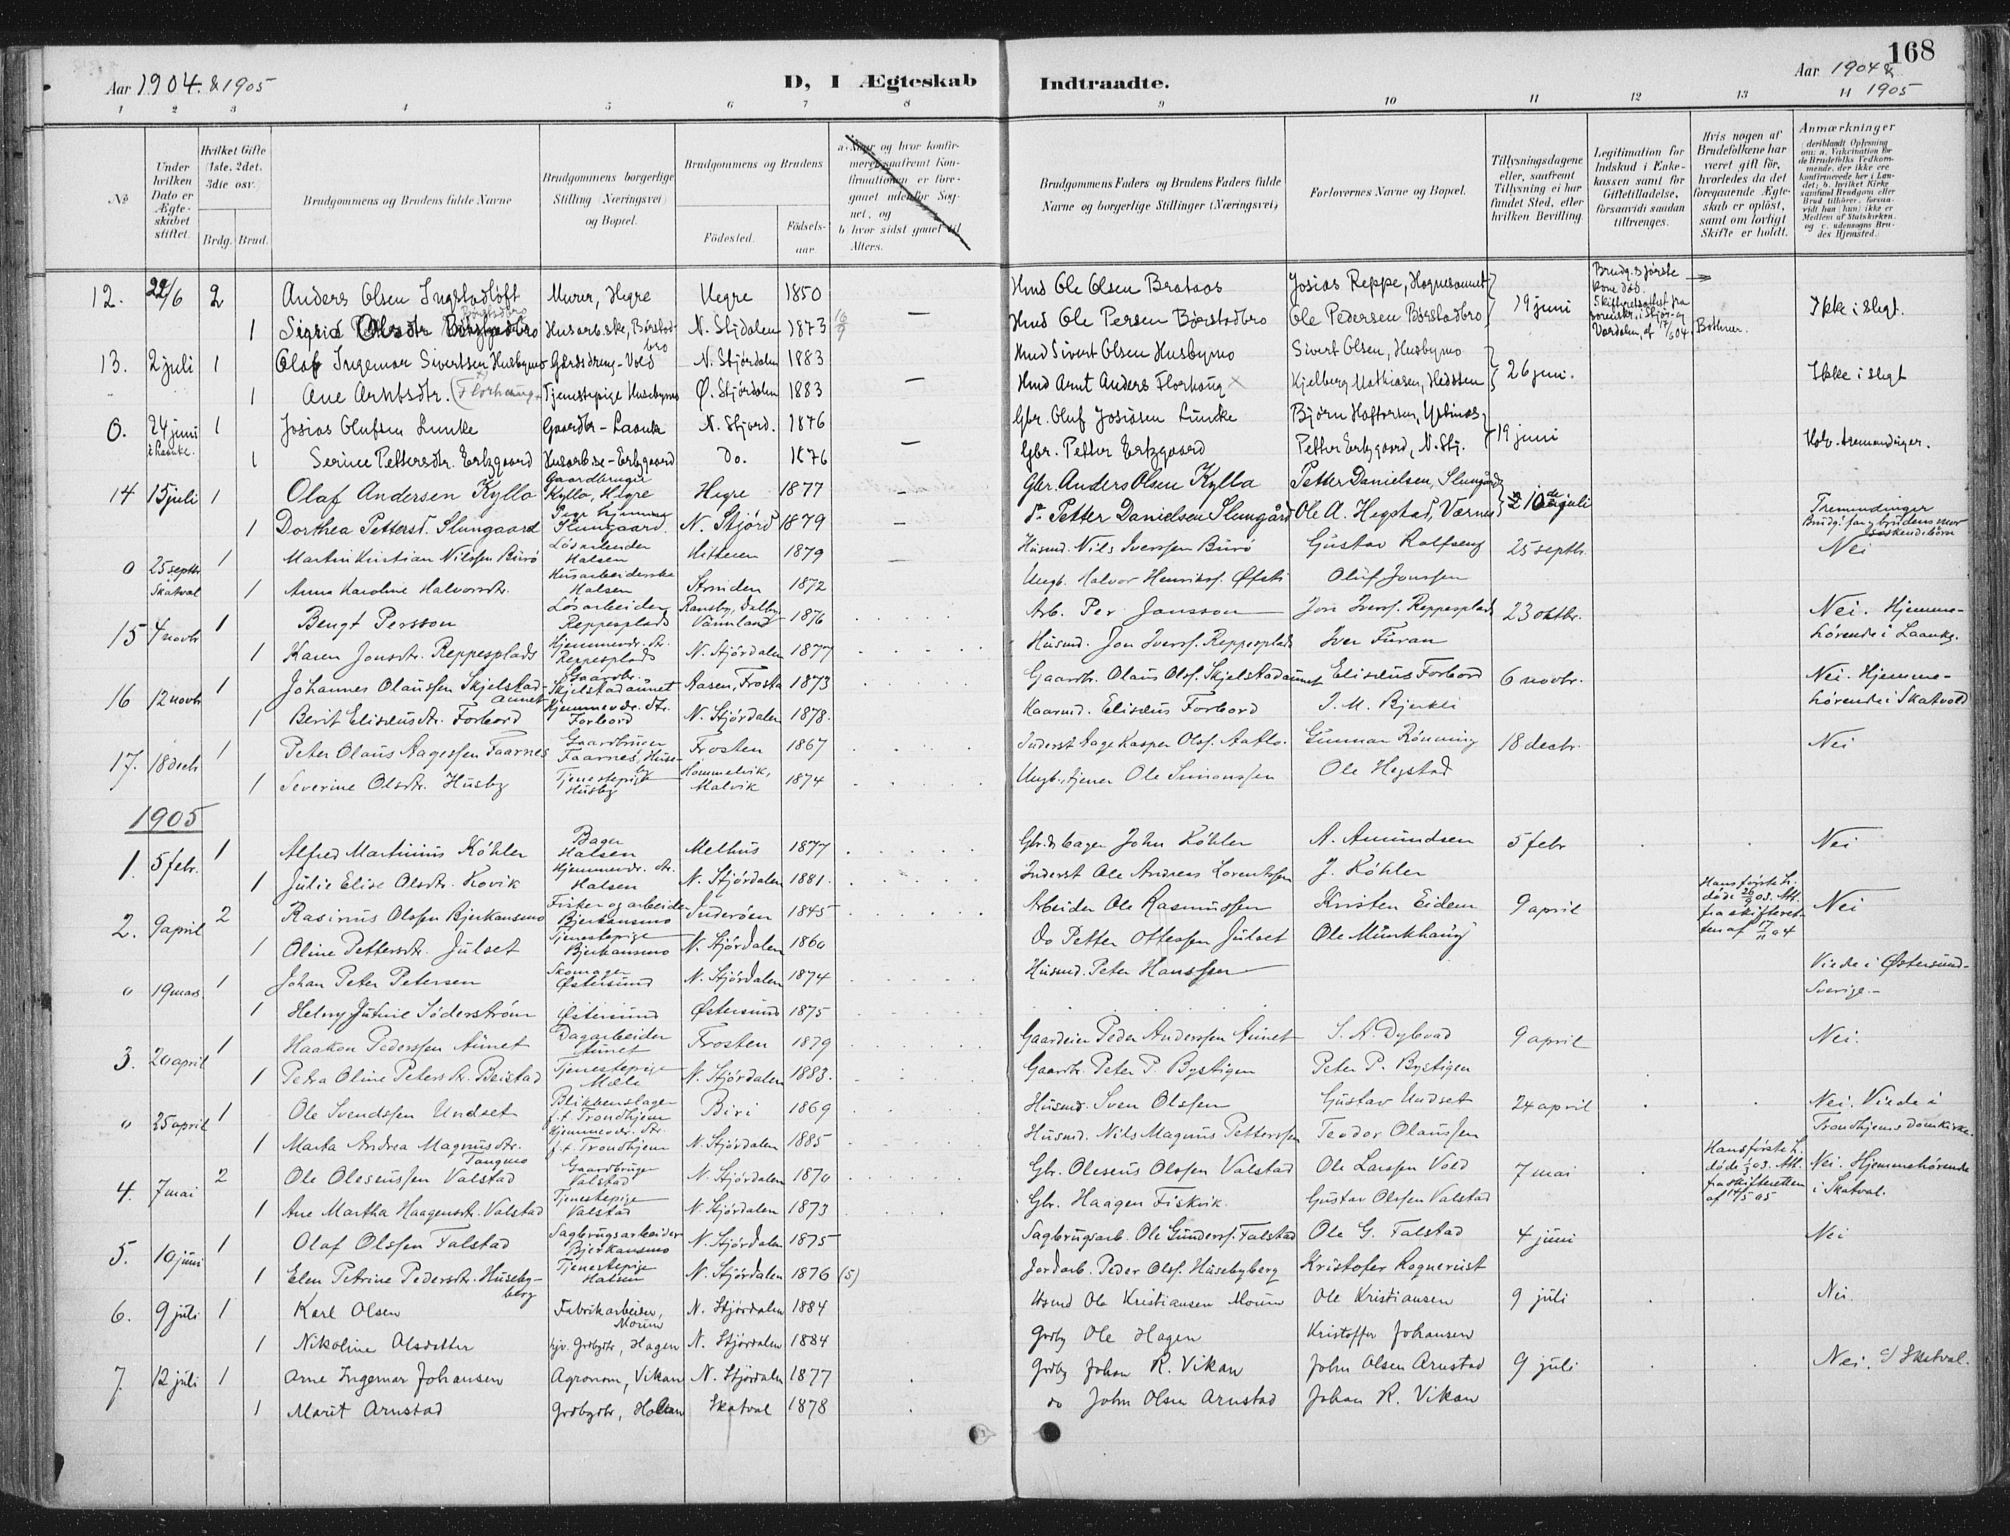 168
Aar 1904. & 1905
D, I Ægteskab Indtraadte.
Aar 1904 &
1905
1 2 3 4 5 6 7 8 9 10 11 12 13 14
No
Under hvilken Dato er Ægteskabet stiftet.
Hvilket Gifte (1ste, 2det, 3die osv.)
Brdg. Brud.
Brudgommens og Brudens fulde Navne
Brudgommens borgerlige Stilling (Næringsvei) og Bopæl.
Brudgommens og Brudens
Födested. Födselsaar
Brudgommens Faders og Brudens Faders fulde Navne og borgerlige Stillinger (Næringsvei)
Forlovernes Navne og Bopæl.
Tillysningsdagene eller, saafremt Tillysning ei har fundet Sted, efter hvilken Bevilling.
Legitimation for Indskud i Enkekassen samt for Giftetilladelse, forsaavidt saadan tiltrænges.
Hvis nogen af Brudefolkene har været gift för, hvorledes da det foregaaende Ægteskab er oplöst, samt om lovligt Skifte er holdt.
Anmærkninger
12. 22/6 2 Anders Olsen Ingstadloft Murer, Hegre Hegre 1850 Hmd Ole Olsen Brataas Josias Reppe, Hognesaunet 19 juni Ikke i slegt.
1 Sigrid Olsdtr Børstadbro Husarb.ske, Børstadbro N. Stjdalen 1873 Hmd Ole Persen Børstadbro Ole Pedersen Børstadbro
13. 2 juli 1 Olaf Ingemar Sivertsen Husbymo Gårdsdreng - Vold N. Stjørdalen 1883 Hmd Sivert Olsen Husbymo Sivert Olsen, Husbymo 26 juni. Ikke i slegt
1 Ane Arntsdtr. (Florhaug) Tjenestepige Husebymo Ø. Stjørdalen 1883 Hmd Arnt Anders Florhaug Kjelberg Mathiasen, Hedsten
0. 24 juni i Laanke. 1 Josias Olufsen Luncke Gaardbr - Laanke N. Stjørd. 1876 Gbr. Oluf Josiasen Luncke Björn Haftorsen, 19 juni
1 Serine Pettersdtr. Ertzgaard Husarb.ske - Ertzgaard Do. 1876 Gbr. Petter Ertzgaard Petter Ertzgaard, N. Stj.
14 15 juli 1 Olaf Andersen Kyllo Gaardbruger Kyllo, Hegre Hegre 1877 Gbr. Anders Olsen Kyllo Petter Danielsen, Slungård 10de juli Tremendinger
1 Dorthea Pettersd. Slungaard Pige hjemme Slungaard. N. Stjörd 1879 do Petter Danielsen Slungård Ole A. Hegstad, Værnes
0 25 septbr Skatval 1 Martin Kristian Nilssen Burö Lösarbeider Halsen Hitteren 1879 Husmd. Nils Iverssen Burö Gustav Rolfseng 25 septbr. Nei
1 Anna Karoline Halvorsdtr. Husarbeiderske Halsen Strinden 1872 Ungk. Halvor Henrikss. Öfsti Oluf Jonssen
15 4 novbr 1 Bengt Persson Lösarbeider Reppesplads Ransby, Dalby Värmland 1876 Arb. Per Jansson Jon Iverss. Reppesplads 23 oktbr. Nei. Hjemmehörende i Laanke.
1 Karen Jonsdtr. Reppesplads Hjemmevær. dtr. Reppesplads N. Stjördalen 1877 Husmd. Jon Iverss. Reppesplads Iver Furan
16 12 novbr 1 Johannes Olaussen Skjelstadaunet Gaardbr. Skjelstadaunet Aasen, Frosta 1873 Gaardbr. Olaus Olss. Skjelstadaunet Elisæus Forbord 6 novbr. Nei. Hjemmehörende i Skatvold
1 Berit Elisæusdtr. Forbord Hjemmevær. dtr. Forbord N. Stjördalen 1878. Kaarmd. Elisæus Forbord J. M. Bjerkli
17. 18 decbr 1 Peter Olaus Aagessen Faarnes Gaardbruger Faarnes, Husby Frosten 1867 Inderst Aage Kasper Olss. Gunnar Rönning 18 decbr. Nei
1 Severine Olsdtr. Husby Tjenestepige Husby Hommelvik, Malvik 1874 Ungk., tjener Ole Simonssen Ole Hegstad
1905
1. 5 febr. 1 Alfred Martinius Köhler Bager Halsen Melhus 1877 Gbr. & bager John Köhler A. Amundsen 5 febr Nei
1 Julie Elise Olsdtr. Kovik Hjemmevær. dtr. Halsen N. Stjördalen 1881. Inderst Ole Andreas Lorentssen J. Köhler
2. 9 april 2 Rasinus Olssen Bjerkansmo Fisker og arbeider Bjerkansmo Inderöen 1845 Arbeider Ole Rasmussen Kirsten Eidem 9 april Nei
1 Oline Pettersdtr. Julset Tjenestepige Bjerkansmo N. Stjördalen 1860 do Petter Ottessen Julset Ole Munkhaug
" 19 mars 1 Johan Peter Petersen Skomager Östersund N. Stjördalen 1874 Husmd. Peter Hanssen Viede i Østersund - Sverige.
1 Helny Justine Söderström Östersund Östersund 1875
3. 20 april 1 Haakon Pederssen Aunet Dagarbeider Aunet Frosten 1879 Gaardeier Peder Anderssen Aunet S. A. Dybvad 9 april Nei.
1 Petra Oline Petersdtr. Beistad Tjenestepige Mæle N. Stjördalen 1883. Gaardbr. Peter P. Bystigen Peter P. Bystigen
" 25 april 1 Ole Svendssen Undset Blikkenslager f.t. Trondhjem Biri 1869 Husmd. Sven Olssen Gustav Undset 24 april Nei. Viede i Trondhjems Domkirke.
1 Marta Andrea Magnusdtr. Tangmo Hjemmevær. dtr. f.t. Trondhjem N. Stjördalen 1885 Husmd. Nils Magnus Petterssen Teodor Olaussen
4. 7 mai 2 Ole Oleseussen Valstad Gaardbruger Valstad N. Stjördalen 1870 Gbr. Oleseus Olssen Valstad Ole Larssen Vold 7 mai Nei. Hjemmehörende i Skatval.
1 Ane Martha Haagensdtr. Valstad Tjenestepige Valstad N. Stjördalen 1873 Gbr. Haagen Fiskvik. Gustav Olssen Valstad
5. 10 juni 1 Olaf Olssen Falstad Sagbrugsarbeider Bjerkansmo N. Stjördalen 1875 Sagbrugsarb. Ole Gunderss. Falstad Ole G. Falstad 4 juni Nei
1 Elen Petrine Pedersdtr. Husebyberg Tjenestepige Halsen N. Stjördalen 1876 (5) Jordarb. Peder Olss. Husebyberg Kristofer Rognerust
6. 9 juli 1 Karl Olsen Fabrikarbeider, Moum N. Stjørdalen 1884 Hsmd Ole Kristiansen Moum Ole Kristiansen 9 juli Nei.
1 Nikoline Olsdatter Hagen N. Stjørdalen 1884 Grdbr Ole Hagen Kristoffer Johansen
7. 12 juli 1 Arne Ingemar Johansen Agronom, Vikan N. Stjørdalen 1877 Grdbr Johan R. Vikan John Olsen Arnstad 9 juli Nei. c/ Skatval.
1 Marit Arnstad Skatval 1878 do John Olsen Arnstad Johan R. Vikan